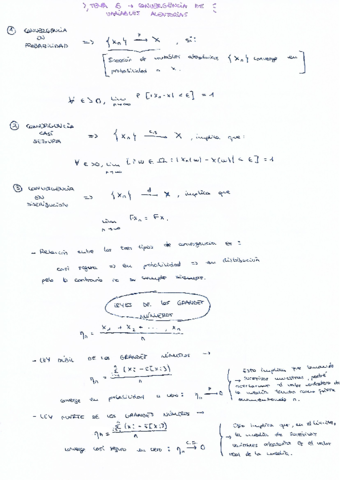 TEMA 5 → CONVERGENCIA DE
VARIABLES ALEATORIAS
① CONVERGENCIA EN PROBABILIDAD => {Xn} →p X, si:
[Sucesión de variables aleatorias {Xn} converge en
probabilidad a X.]
∀ ε>0, lim n→∞ P [|Xn-X| < ε] = 1
② CONVERGENCIA CASI SEGURA => {Xn} →c.s. X, implica que:
∀ ε>0, lim n→∞ { P w ∈ Ω : |Xn(w) - X(w)| < ε} = 1
③ CONVERGENCIA EN DISTRIBUCIÓN => {Xn} →d X, implica que
lim n→∞ Fxn = Fx.
- Relación entre los tres tipos de convergencia es:
casi segura => en probabilidad => en distribución
pero lo contrario no se cumple siempre.
LEYES DE LOS GRANDES
NÚMEROS
ηn = X1 + X2 + ... Xn / n
- LEY DÉBIL DE LOS GRANDES NÚMEROS →
ηn = Σ (Xi - E[Xi]) / n
converge en probabilidad a cero: ηn →p 0
Esto implica que tomando
- LEY FUERTE DE LOS GRANDES NÚMEROS →
ηn = Σ (Xi - E[Xi]) / n
converge casi seguro a cero: ηn →c.s. 0
Esto implica que, en el límite,
la media de
variables aleatorias es el valor
de la media.